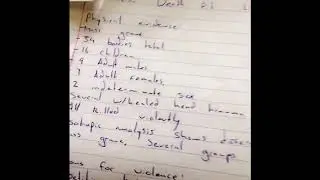 Death
Physical evidence
Mass grave
- 34 bodies total
- 16 children
- 9 Adult males
- 7 Adult females
2 indeterminate sex
Several w/healed head trauma
All killed violently
isotopic analysis shows
mass grave. Several groups
for violence: